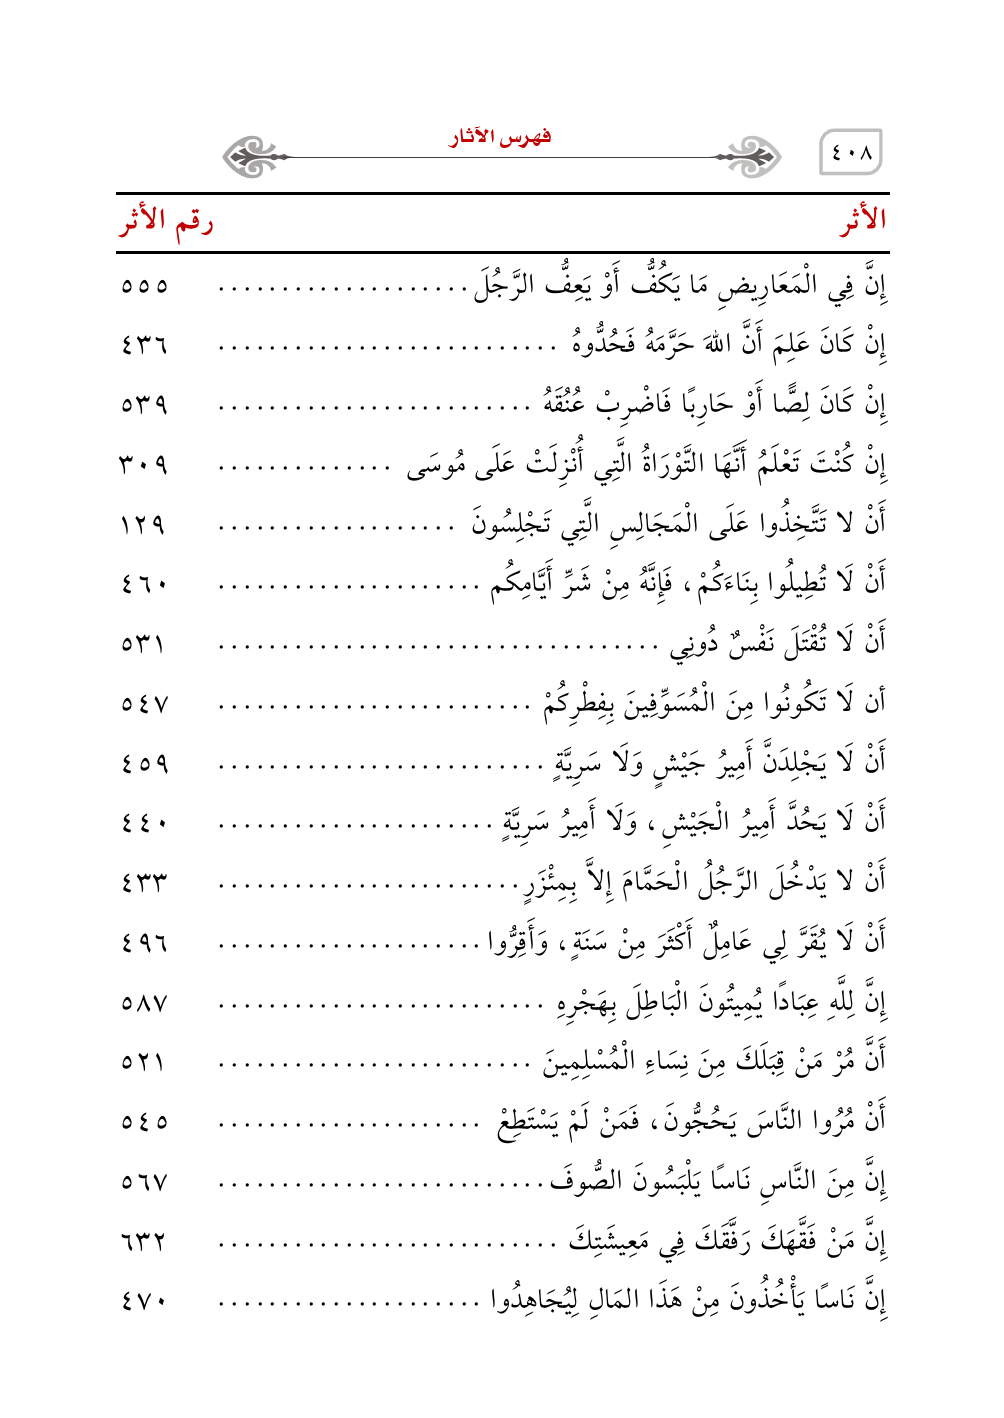 ٤٠٨ فهرس الآثار
الأثر رقم الأثر
إِنَّ فِي الْمَعَارِيضِ مَا يَكُفُّ أَوْ يَعِفُّ الرَّجُلَ .................... ٥٥٥
إِنْ كَانَ عَلِمَ أَنَّ اللهَ حَرَّمَهُ فَحُدُّوهُ ........................... ٤٣٦
إِنْ كَانَ لِصًّا أَوْ حَارِبًا فَاضْرِبْ عُنُقَهُ ......................... ٥٣٩
إِنْ كُنْتَ تَعْلَمُ أَنَّهَا التَّوْرَاةُ الَّتِي أُنْزِلَتْ عَلَى مُوسَى .............. ٣٠٩
أَنْ لا تَتَّخِذُوا عَلَى الْمَجَالِسِ الَّتِي تَجْلِسُونَ ................... ١٢٩
أَنْ لَا تُطِيلُوا بِنَاءَكُمْ، فَإِنَّهُ مِنْ شَرِّ أَيَّامِكُم ..................... ٤٦٠
أَنْ لَا تُقْتَلَ نَفْسٌ دُونِي ................................... ٥٣١
أن لَا تَكُونُوا مِنَ الْمُسَوِّفِينَ بِفِطْرِكُمْ ......................... ٥٤٧
أَنْ لَا يَجْلِدَنَّ أَمِيرُ جَيْشٍ وَلَا سَرِيَّةٍ .......................... ٤٥٩
أَنْ لَا يَحُدَّ أَمِيرُ الْجَيْشِ، وَلَا أَمِيرُ سَرِيَّةٍ ...................... ٤٤٠
أَنْ لا يَدْخُلَ الرَّجُلُ الْحَمَّامَ إِلاَّ بِمِئْزَرٍ ........................ ٤٣٣
أَنْ لَا يُقَرَّ لِي عَامِلٌ أَكْثَرَ مِنْ سَنَةٍ، وَأَقِرُّوا ..................... ٤٩٦
إِنَّ لِلَّهِ عِبَادًا يُمِيتُونَ الْبَاطِلَ بِهَجْرِهِ .......................... ٥٨٧
أَنَّ مُرْ مَنْ قِبَلَكَ مِنَ نِسَاءِ الْمُسْلِمِينَ ......................... ٥٢١
أَنْ مُرُوا النَّاسَ يَحُجُّونَ، فَمَنْ لَمْ يَسْتَطِعْ ..................... ٥٤٥
إِنَّ مِنَ النَّاسِ نَاسًا يَلْبَسُونَ الصُّوفَ .......................... ٥٦٧
إِنَّ مَنْ فَقَّهَكَ رَفَّقَكَ فِي مَعِيشَتِكَ ........................... ٦٣٢
إِنَّ نَاسًا يَأْخُذُونَ مِنْ هَذَا المَالِ لِيُجَاهِدُوا ..................... ٤٧٠